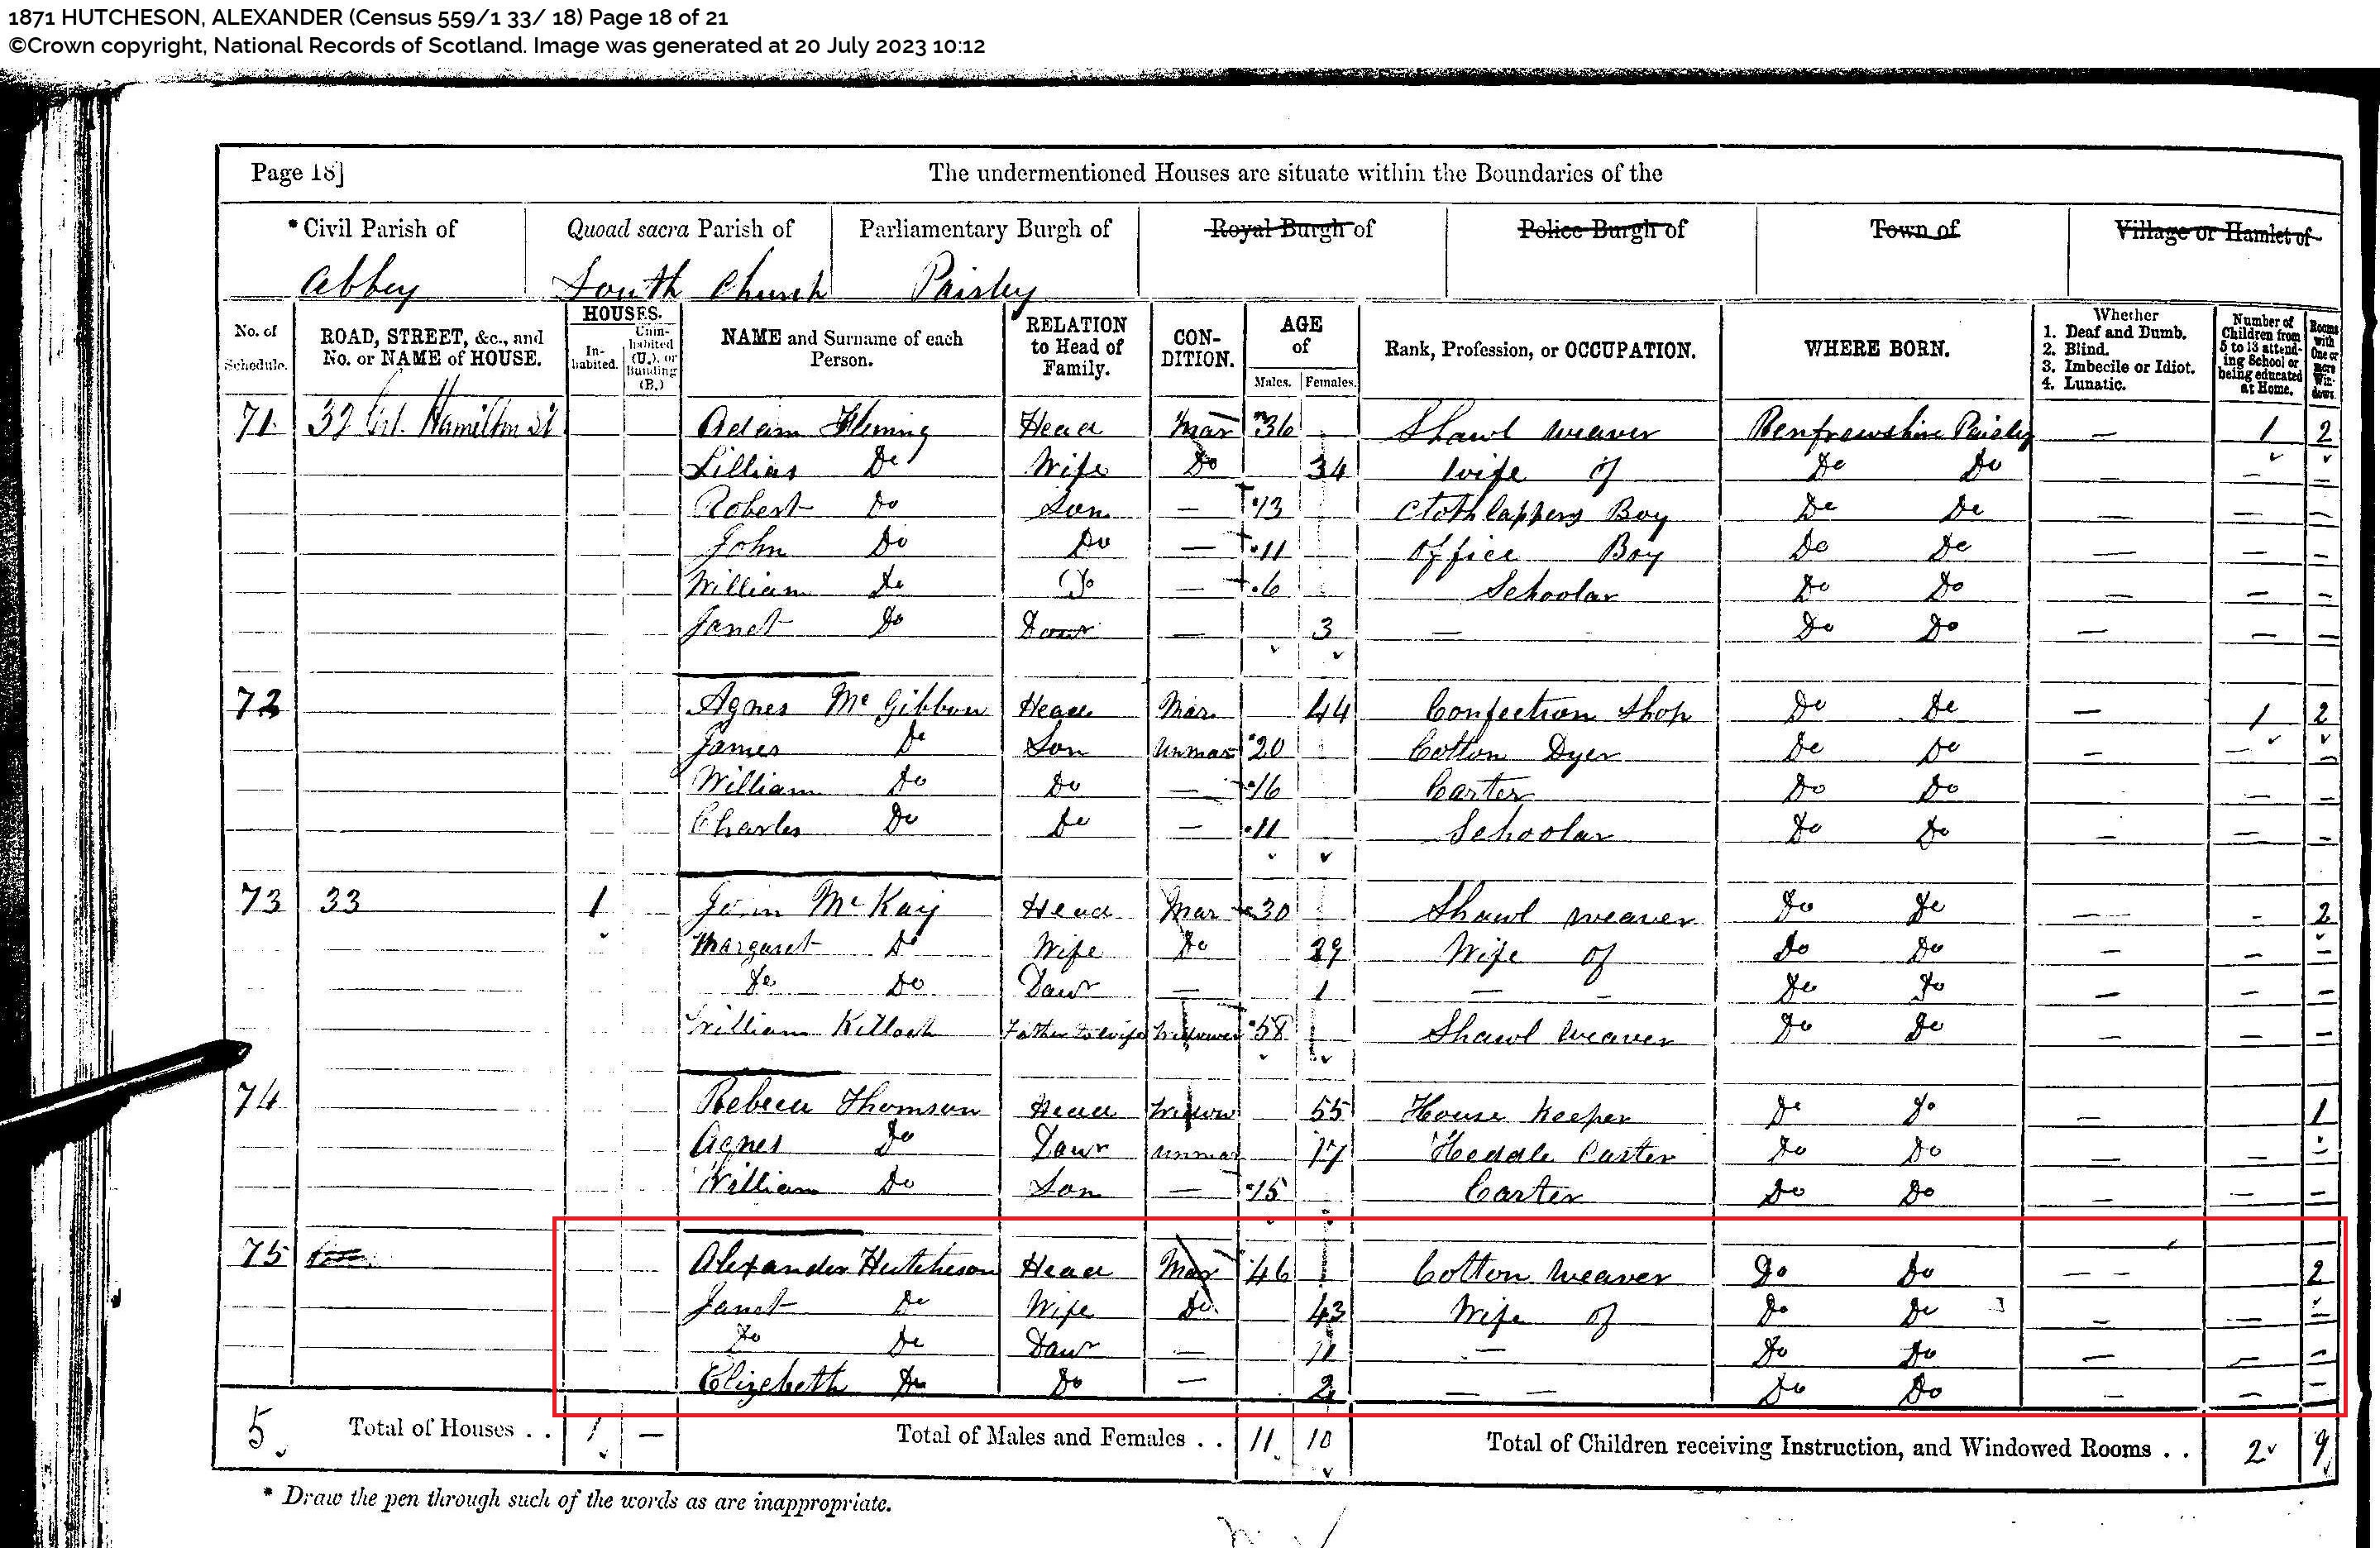 1871 HUTCHESON, ALEXANDER (Census 559/1 33/ 18) Page 18 of 21
©Crown copyright, National Records of Scotland. Image was generated at 20 July 2023 10:12
Page 18] The undermentioned Houses are situate within the Boundaries of the
* Civil Parish of Quoad sacra Parish of Parliamentary Burgh of Royal Burgh of Police Burgh of Town of Village or Hamlet of
Abbey South Church Paisley
No. of Schedule. ROAD, STREET, &c., and No. or NAME of HOUSE. HOUSES. In-habited. Unin-habited (U.), or Building (B.) NAME and Surname of each Person. RELATION to Head of Family. CON-DITION. AGE of Males. Females. Rank, Profession, or OCCUPATION. WHERE BORN. Whether 1. Deaf and Dumb. 2. Blind. 3. Imbecile or Idiot. 4. Lunatic. Number of Children from 5 to 13 attend-ing School or being educated at Home. Rooms with One or more Win-dows.
71 32 Hamilton St Adam Fleming Head Mar 36 Shawl weaver Renfrewshire Paisley — 1 2
Lillias Do Wife Do 34 Wife of Do Do — — —
Robert Do Son — 13 Cloth lappers Boy Do Do — — —
John Do Do — 11 Office Boy Do Do — — —
William Do Do — 6 Schoolar Do Do — — —
Janet Do Dawr — 3 — - Do Do — — —
72 Agnes McGibbon Head Mar 44 Confection Shop Do Do — 1 2
James Do Son Unmar 20 Cotton Dyer Do Do - — —
William Do Do — 16 Carter Do Do — —
Charles Do Do — 11 Schoolar Do Do — — —
73 33 1 John McKay Head Mar 30 Shawl weaver Do Do — - 2
Margaret Do Wife Do 29 Wife of Do Do — — —
Do Do Dawr — 1 — - Do Do — — —
William Killoch Father to wife Widower 58 Shawl Weaver Do Do — — —
74 Rebeca Thomson Head Widow 55 House Keeper Do Do — 1
Agnes Do Dawr Unmar 17 Heddle Caster Do Do — — —
William Do Son — 15 Carter Do Do — — —
75 Alexander Hutcheson Head Mar 46 Cotton Weaver Do Do — — 2
Janet Do Wife Do 43 Wife of Do Do — — —
Do Do Dawr — 11 — Do Do — — —
Elizebeth Do Do — 2 — — Do Do — — —
5 Total of Houses . . 1 — Total of Males and Females . . 11 10 Total of Children receiving Instruction, and Windowed Rooms . . 2 9
* Draw the pen through such of the words as are inappropriate.